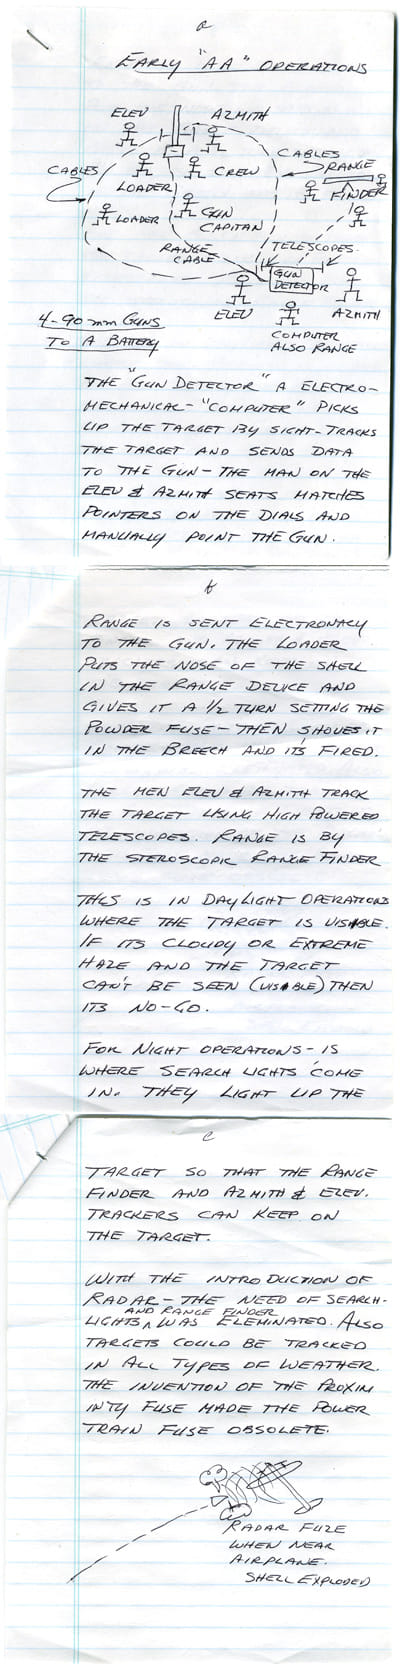 a
EARLY "AA" OPERATIONS
ELEV
AZMITH
CABLES
LOADER
CREW
CABLES
RANGE
FINDER
LOADER
GUN
CAPITAN
RANGE
CABLE
TELESCOPES.
GUN
DETECTOR
ELEV
AZMITH
COMPUTER
ALSO RANGE
4-90 mm GUNS
TO A BATTERY
THE "GUN DETECTOR" A ELECTRO-
MECHANICAL-"COMPUTER" PICKS
UP THE TARGET BY SIGHT-TRACKS
THE TARGET AND SENDS DATA
TO THE GUN - THE MAN ON THE
ELEV & AZMITH SEATS MATCHES
POINTERS ON THE DIALS AND
MANUALLY POINT THE GUN.
b
RANGE IS SENT ELECTRONACY
TO THE GUN. THE LOADER
PUTS THE NOSE OF THE SHELL
IN THE RANGE DEVICE AND
GIVES IT A 1/2 TURN SETTING THE
POWDER FUSE - THEN SHOVES IT
IN THE BREECH AND ITS FIRED.
THE MEN ELEV & AZMITH TRACK
THE TARGET USING HIGH POWERED
TELESCOPES. RANGE IS BY
THE STEROSCOPIC RANGE FINDER
THIS IS IN DAYLIGHT OPERATIONS
WHERE THE TARGET IS VISABLE.
IF ITS CLOUDY OR EXTREME
HAZE AND THE TARGET
CAN'T BE SEEN (VISABLE) THEN
ITS NO-GO.
FOR NIGHT OPERATIONS - IS
WHERE SEARCH LIGHTS COME
IN. THEY LIGHT UP THE
c
TARGET SO THAT THE RANGE
FINDER AND AZMITH & ELEV.
TRACKERS CAN KEEP ON
THE TARGET.
WITH THE INTRODUCTION OF
RADAR - THE NEED OF SEARCH-
AND RANGE FINDER
LIGHTS ^ WAS ELEMINATED. ALSO
TARGETS COULD BE TRACKED
IN ALL TYPES OF WEATHER.
THE INVENTION OF THE PROXIM
INTY FUSE MADE THE POWER
TRAIN FUSE OBSOLETE.
RADAR FUZE
WHEN NEAR
AIRPLANE.
SHELL EXPLODED